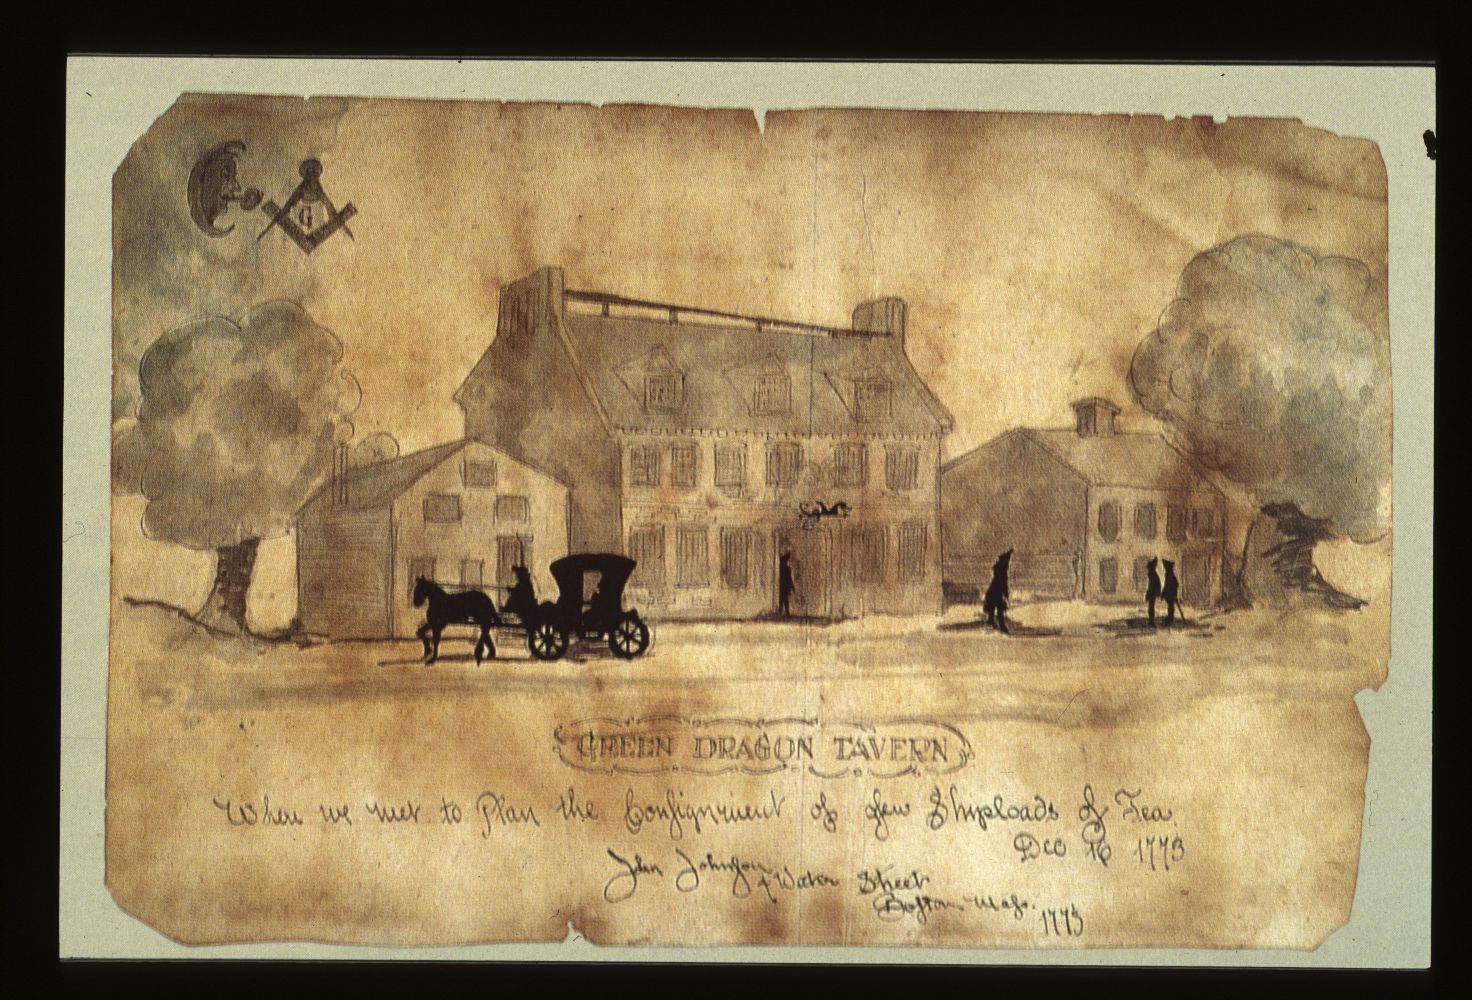 G
GREEN DRAGON TAVERN
When we met to Plan the Consignment of few Shiploads of Tea.
Dec 16 1773
John Johnson
4 Water Street
Boston. Mass.
1773